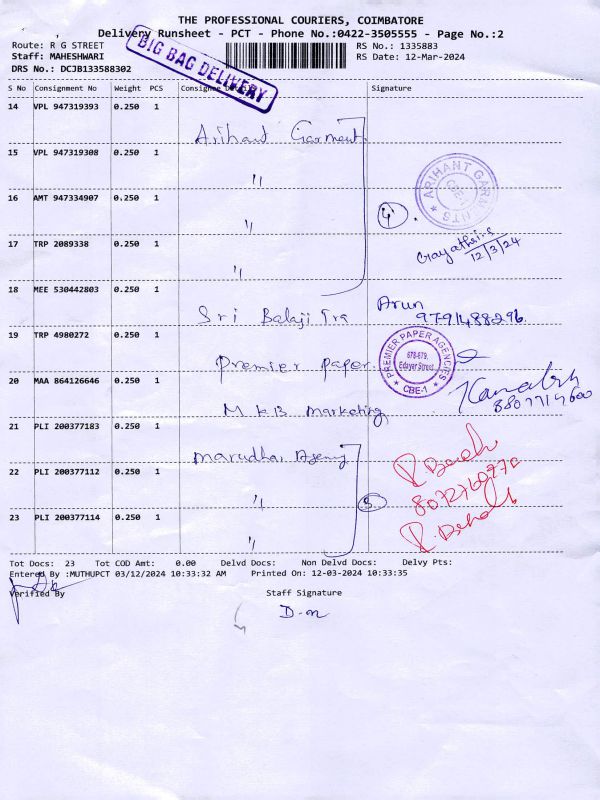 THE PROFESSIONAL COURIERS, COIMBATORE
Delivery Runsheet - PCT - Phone No.:0422-3505555 - Page No.:2
Route: R G STREET
RS No.: 1335883
Staff: MAHESHWARI
RS Date: 12-Mar-2024
DRS No.: DCJB133588302
BIG BAG DELIVERY
S No Consignment No Weight PCS Consignee Details Signature
14 VPL 947319393 0.250 1
Arihant Garment
15 VPL 947319308 0.250 1
"
ARIHANT GARMENTS
CBE-1
16 AMT 947334907 0.250 1
"
4
17 TRP 2089338 0.250 1
"
12/3/24
18 MEE 530442803 0.250 1
Sri Balaji Tra
Arun
9791488296
19 TRP 4980272 0.250 1
Premier Paper
PREMIER PAPER AGENCIES
678-679,
Edayer Street,
CBE-1
20 MAA 864126646 0.250 1
M k B Marketing
21 PLI 200377183 0.250 1
Marudhar Agency
22 PLI 200377112 0.250 1
"
23 PLI 200377114 0.250 1
"
Tot Docs: 23 Tot COD Amt: 0.00 Delvd Docs: Non Delvd Docs: Delvy Pts:
Entered By :MUTHUPCT 03/12/2024 10:33:32 AM Printed On: 12-03-2024 10:33:35
Verified By Staff Signature